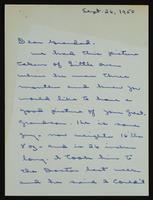 Sept. 26, 1950
Dear Grandad,
We had this picture
taken of little
when he was three
months and knew you
would like to have a
good picture of your great
Grandson. He is some
guy, now weighs 16 lbs
8 oz. and is 26 inches
long. I took him to
the Doctor last week
and he said I couldn't